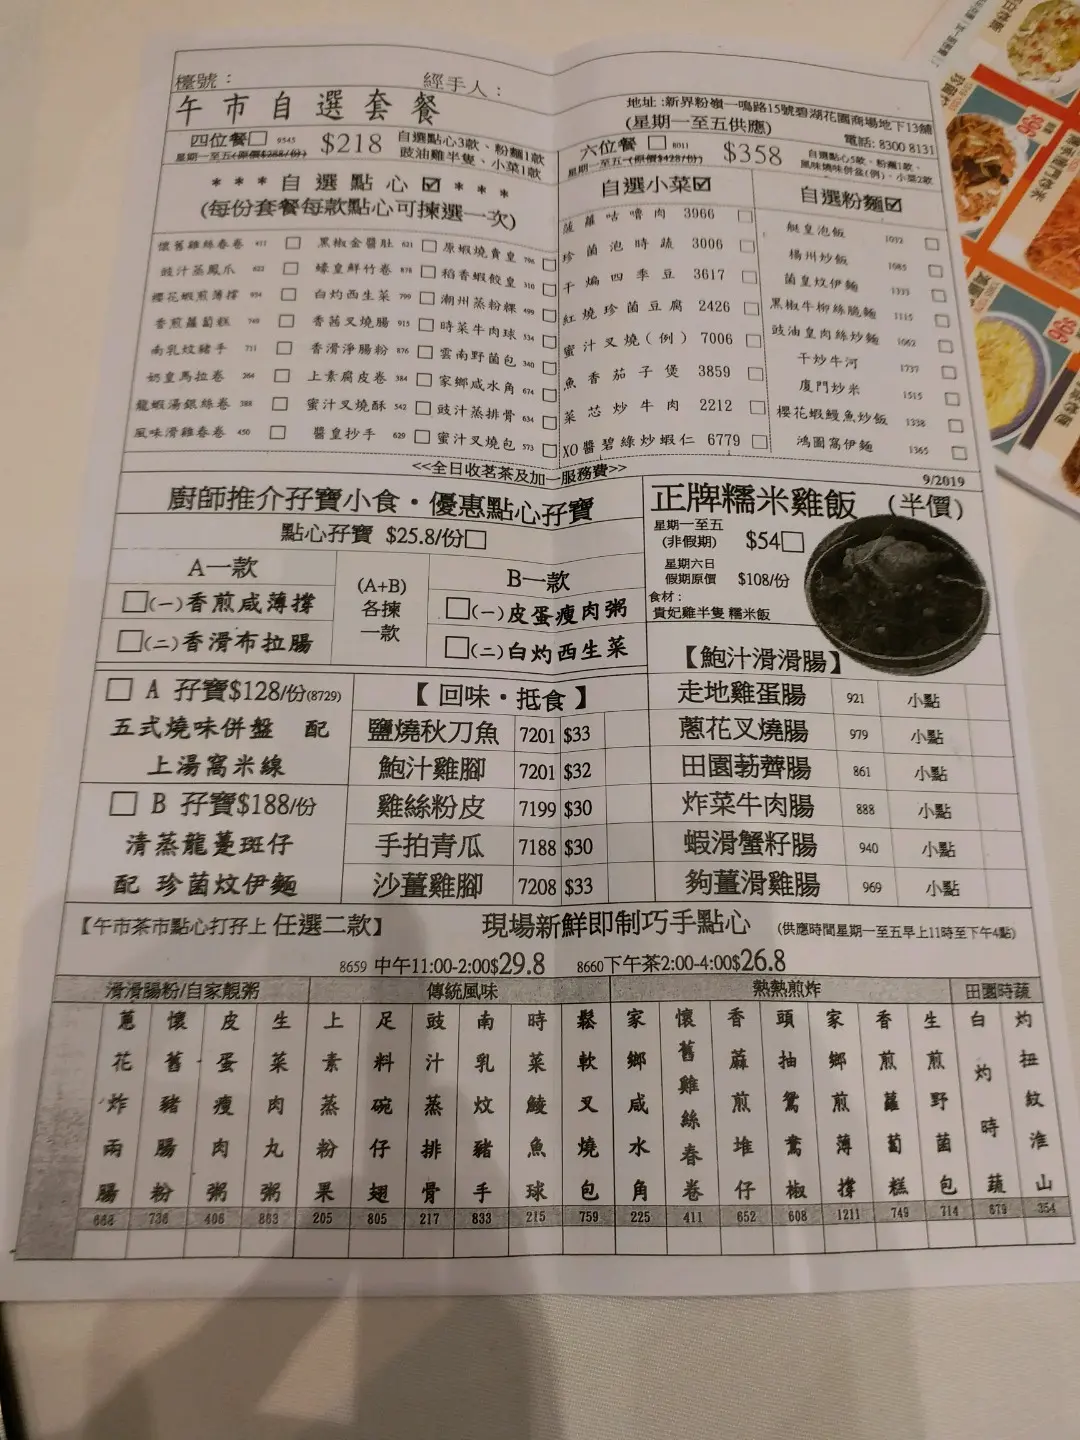 檯號：
經手人：
午市自選套餐
地址:新界粉嶺一鳴路15號碧湖花園商場地下13舖
(星期一至五供應)
電話: 8300 8131
四位餐 9545 $218
星期一至五(原價$288/份)
自選點心3款、粉麵1款
豉油雞半隻、小菜1款
六位餐 8011 $358
星期一至五(原價$428/份)
自選點心5款、粉麵1款、
風味燒味併盆(例)、小菜2款
***自選點心☑***
(每份套餐每款點心可揀選一次)
懷舊雞絲春卷 411 黑椒金醬肚 621 原蝦燒賣皇 706
豉汁蒸鳳爪 622 蠔皇鮮竹卷 878 稻香蝦餃皇 310
櫻花蝦煎薄撐 934 白灼西生菜 799 潮州蒸粉粿 499
香煎蘿蔔糕 749 香茜叉燒腸 915 時菜牛肉球 334
南乳炆豬手 711 香滑淨腸粉 876 雲南野菌包 340
奶皇馬拉卷 264 上素腐皮卷 384 家鄉咸水角 674
龍蝦湯銀絲卷 388 蜜汁叉燒酥 542 豉汁蒸排骨 634
風味滑雞春卷 450 醬皇抄手 629 蜜汁叉燒包 573
自選小菜☑
菠蘿咕嚕肉 3966
珍菌泡時蔬 3006
干煸四季豆 3617
紅燒珍菌豆腐 2426
蜜汁叉燒(例) 7006
魚香茄子煲 3859
菜芯炒牛肉 2212
XO醬碧綠炒蝦仁 6779
自選粉麵☑
艇皇泡飯 1072
楊州炒飯 1085
菌皇炆伊麵 1333
黑椒牛柳絲脆麵 1115
豉油皇肉絲炒麵 1062
干炒牛河 1737
廈門炒米 1515
櫻花蝦鰻魚炒飯 1338
鴻圖窩伊麵 1365
<<全日收茗茶及加一服務費>>
9/2019
廚師推介孖寶小食・優惠點心孖寶
點心孖寶 $25.8/份
A一款
(一)香煎咸薄撐
(二)香滑布拉腸
(A+B)
各揀
一款
B一款
(一)皮蛋瘦肉粥
(二)白灼西生菜
正牌糯米雞飯 (半價)
星期一至五
(非假期) $54
星期六日
假期原價 $108/份
食材：
貴妃雞半隻 糯米飯
A 孖寶$128/份(8729)
五式燒味併盤 配
上湯窩米線
B 孖寶$188/份
清蒸龍躉斑仔
配 珍菌炆伊麵
【回味・抵食】
鹽燒秋刀魚 7201 $33
鮑汁雞腳 7201 $32
雞絲粉皮 7199 $30
手拍青瓜 7188 $30
沙薑雞腳 7208 $33
【鮑汁滑滑腸】
走地雞蛋腸 921 小點
蔥花叉燒腸 979 小點
田園葧薺腸 861 小點
炸菜牛肉腸 888 小點
蝦滑蟹籽腸 940 小點
夠薑滑雞腸 969 小點
【午市茶市點心打孖上 任選二款】
現場新鮮即制巧手點心 (供應時間星期一至五早上11時至下午4點)
8659 中午11:00-2:00$29.8 8660下午茶2:00-4:00$26.8
滑滑腸粉/自家靚粥
蔥花炸兩腸 668
懷舊豬腸粉 736
皮蛋瘦肉粥 406
生菜肉丸粥 863
傳統風味
上素蒸粉果 205
足料碗仔翅 805
豉汁蒸排骨 217
南乳炆豬手 833
時菜鯪魚球 215
鬆軟叉燒包 759
熱熱煎炸
家鄉咸水角 225
懷舊雞絲春卷 411
香蔴煎堆仔 652
頭抽鴛鴦椒 608
家鄉煎薄撐 1211
香煎蘿蔔糕 749
生煎野菌包 714
田園時蔬
白灼時蔬 679
灼扭紋淮山 354